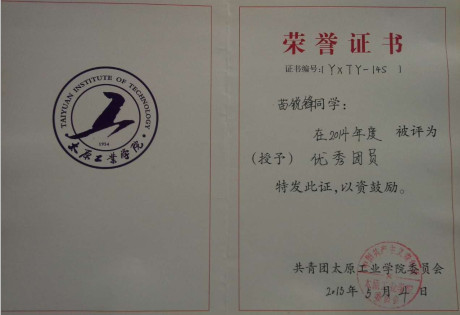 TAIYUAN INSTITUTE OF TECHNOLOGY
1954
太原工业学院
荣誉证书
证书编号:(YXTY-145)
苗锐锋同学:
在2014年度 被评为
(授予) 优秀团员
特发此证,以资鼓励。
共青团太原工业学院委员会
2015年5月4日